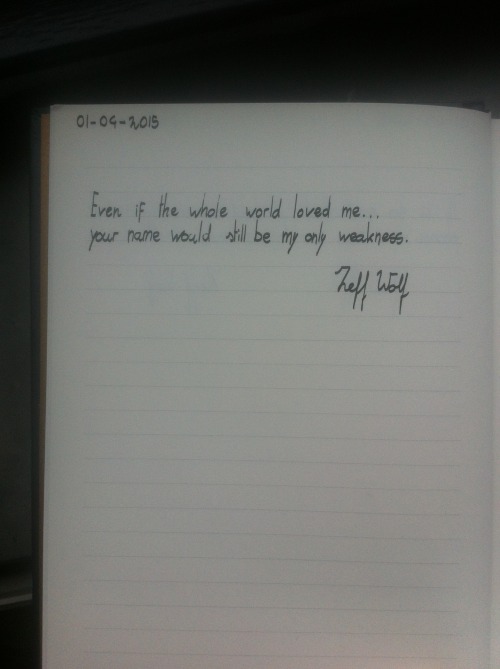 01-09-2015
Even if the whole world loved me...
your name would still be my only weakness.
Zeff Wolf